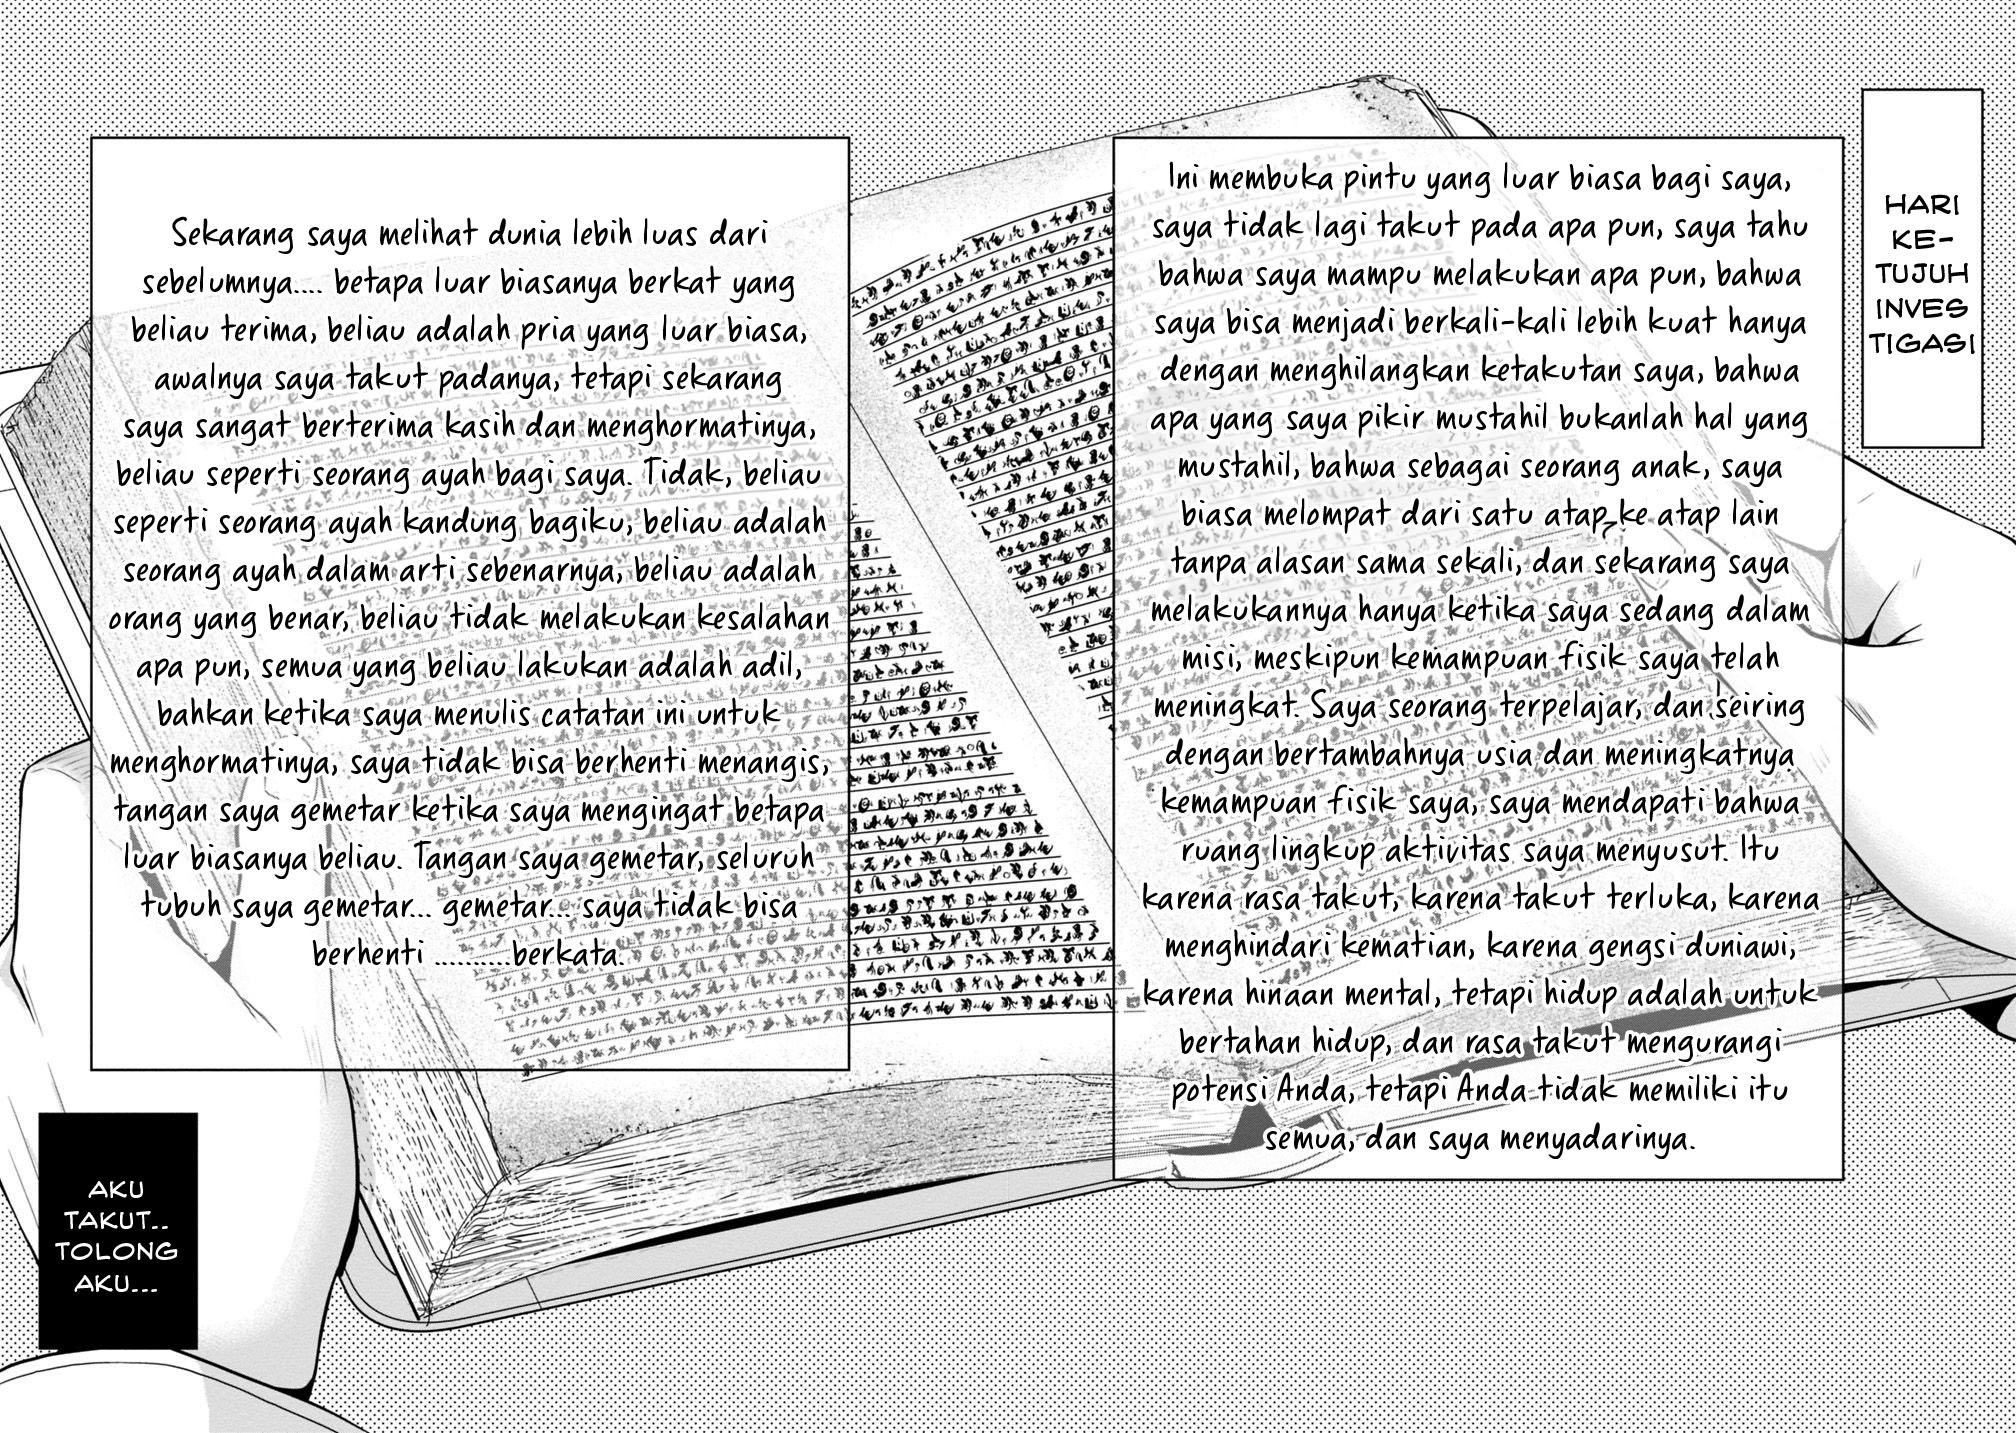 HARI
KE-
TUJUH
INVES
TIGASI
Ini membuka pintu yang luar biasa bagi saya,
saya tidak lagi takut pada apa pun, saya tahu
bahwa saya mampu melakukan apa pun, bahwa
saya bisa menjadi berkali-kali lebih kuat hanya
dengan menghilangkan ketakutan saya, bahwa
apa yang saya pikir mustahil bukanlah hal yang
mustahil, bahwa sebagai seorang anak, saya
biasa melompat dari satu atap ke atap lain
tanpa alasan sama sekali, dan sekarang saya
melakukannya hanya ketika saya sedang dalam
misi, meskipun kemampuan fisik saya telah
meningkat. Saya seorang terpelajar, dan seiring
dengan bertambahnya usia dan meningkatnya
kemampuan fisik saya, saya mendapati bahwa
ruang lingkup aktivitas saya menyusut. Itu
karena rasa takut, karena takut terluka, karena
menghindari kematian, karena gengsi duniawi,
karena hinaan mental, tetapi hidup adalah untuk
bertahan hidup, dan rasa takut mengurangi
potensi Anda, tetapi Anda tidak memiliki itu
semua, dan saya menyadarinya.
Sekarang saya melihat dunia lebih luas dari
sebelumnya.... betapa luar biasanya berkat yang
beliau terima, beliau adalah pria yang luar biasa,
awalnya saya takut padanya, tetapi sekarang
saya sangat berterima kasih dan menghormatinya,
beliau seperti seorang ayah bagi saya. Tidak, beliau
seperti seorang ayah kandung bagiku, beliau adalah
seorang ayah dalam arti sebenarnya, beliau adalah
orang yang benar, beliau tidak melakukan kesalahan
apa pun, semua yang beliau lakukan adalah adil,
bahkan ketika saya menulis catatan ini untuk
menghormatinya, saya tidak bisa berhenti menangis,
tangan saya gemetar ketika saya mengingat betapa
luar biasanya beliau. Tangan saya gemetar, seluruh
tubuh saya gemetar... gemetar... saya tidak bisa
berhenti ...........berkata.
AKU
TAKUT..
TOLONG
AKU...